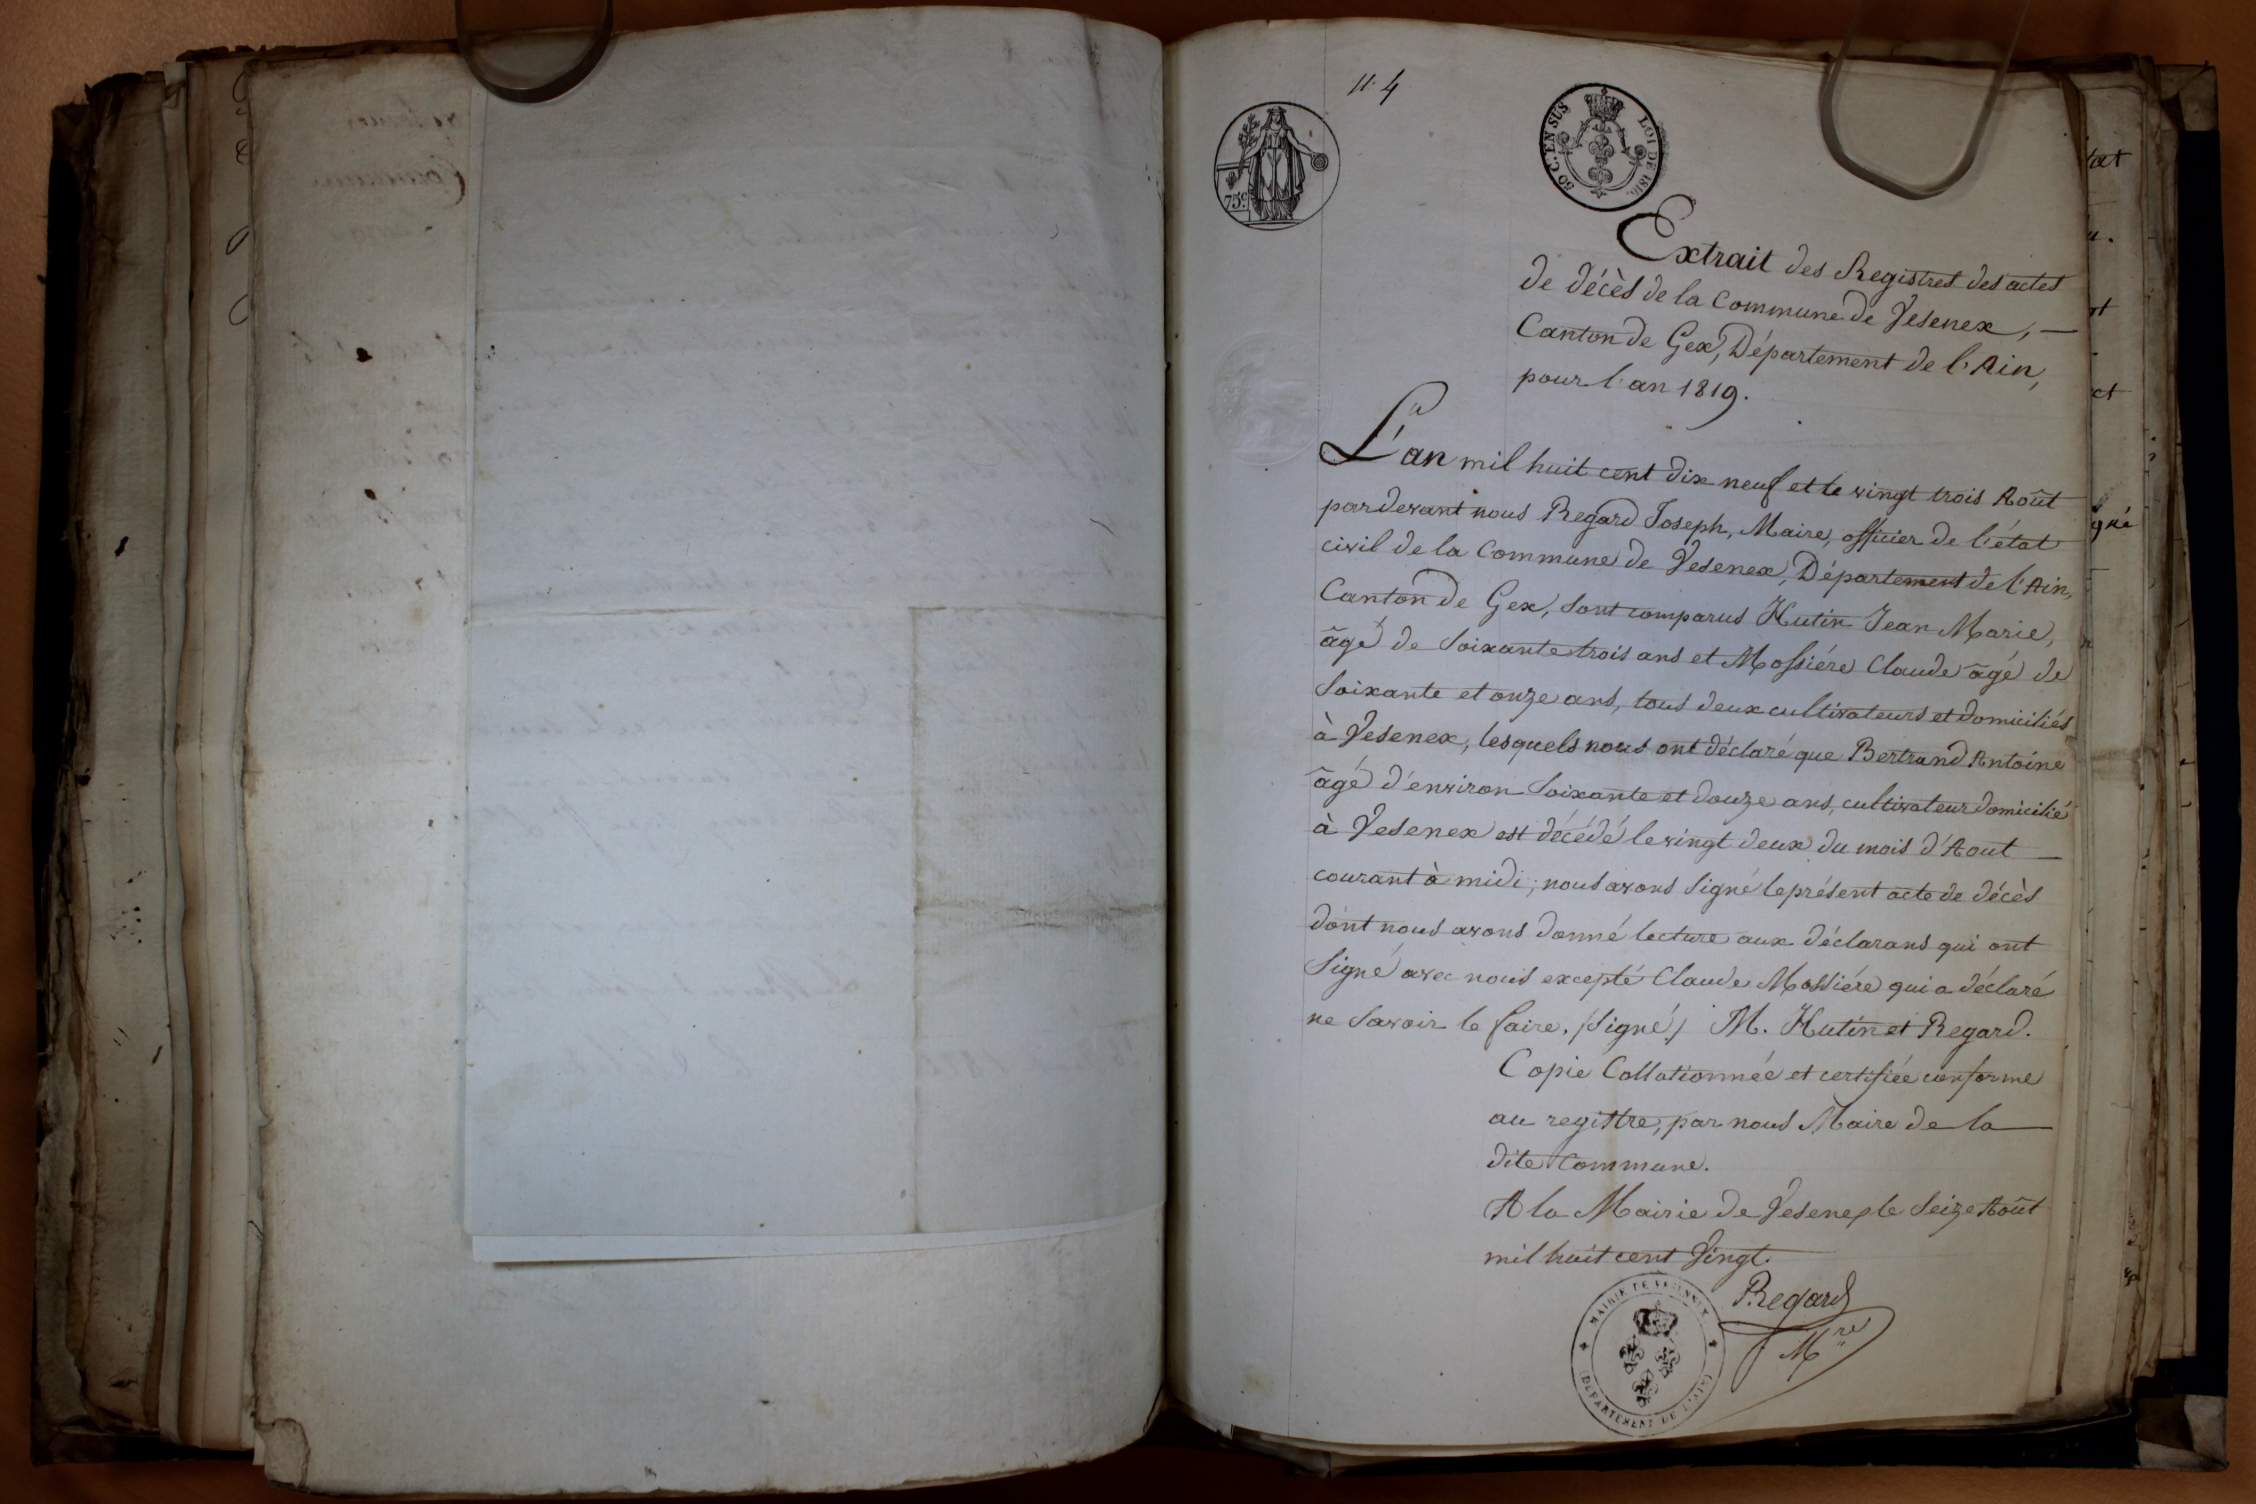 n. 4
75c
50 C. EN SUS
LOI DE 1816.
Extrait des Registres des actes
de décès de la Commune de Vesenex, —
Canton de Gex, Département de l'Ain,
pour l'an 1819.
L'an mil huit cent dix neuf et le vingt trois Août
pardevant nous Regard Joseph, Maire, officier de l'état
civil de la Commune de Vesenex, Département de l'Ain,
Canton de Gex, sont comparus Hutin Jean Marie,
âgé de soixante trois ans et Mossiére Claude âgé de
soixante et onze ans, tous deux cultivateurs et domiciliés
à Vesenex, lesquels nous ont déclaré que Bertrand Antoine
âgé d'environ soixante et douze ans, cultivateur domicilié
à Vesenex est décédé le vingt deux du mois d'Aout —
courant à midi; nous avons signé le présent acte de décès
dont nous avons donné lecture aux déclarans qui ont
signé avec nous excepté Claude Mossiére qui a déclaré
ne savoir le faire. (signé) M. Hutin et Regard.
Copie Collationnée et certifiée conforme
au registre, par nous Maire de la —
dite Commune.
A la Mairie de Vesenex le seize Août
mil huit cent vingt.
Regard
Mre
MAIRIE DE VESENEX
DEPARTEMENT DE L'AIN